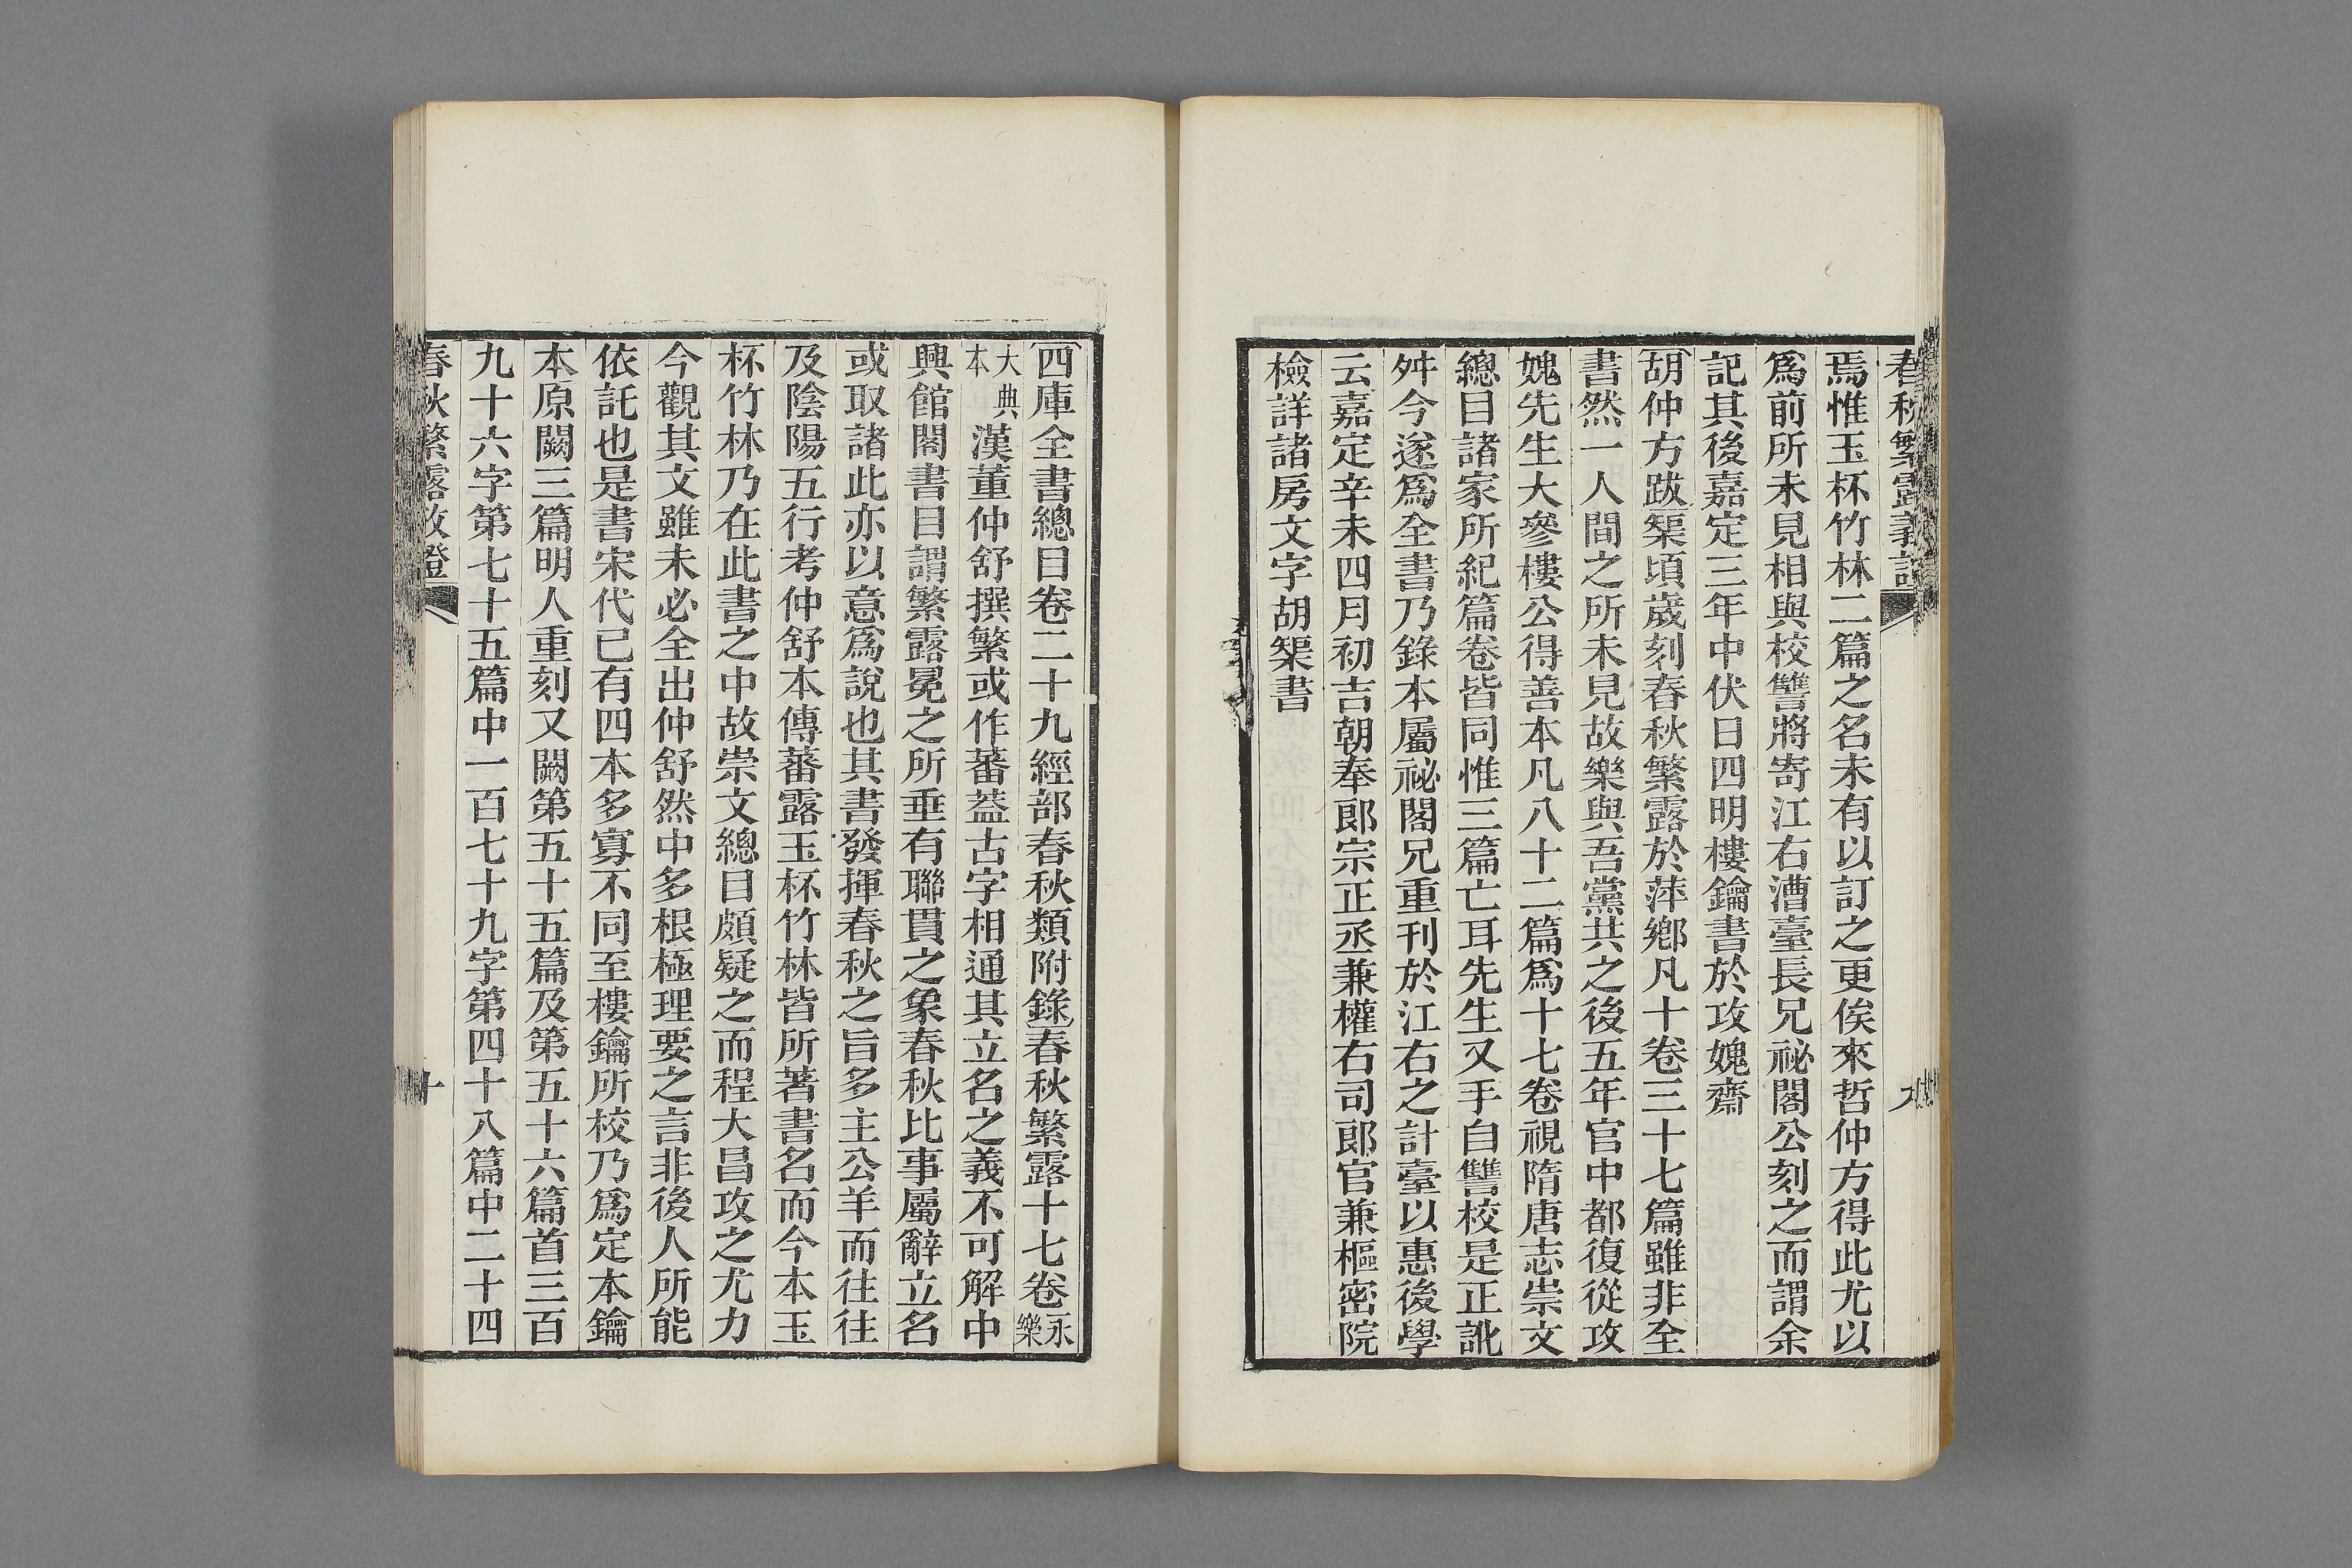 春秋繁露義證
焉惟玉杯竹林二篇之名未有以訂之更俟來哲仲方得此尤以
爲前所未見相與校讐將寄江右漕臺長兄祕閣公刻之而謂余
記其後嘉定三年中伏日四明樓鑰書於攻媿齋
胡仲方跋榘頃歲刻春秋繁露於萍鄉凡十卷三十七篇雖非全
書然一人間之所未見故樂與吾黨共之後五年官中都復從攻
媿先生大參樓公得善本凡八十二篇爲十七卷視隋唐志崇文
總目諸家所紀篇卷皆同惟三篇亡耳先生又手自讐校是正訛
舛今遂爲全書乃錄本屬祕閣兄重刊於江右之計臺以惠後學
云嘉定辛未四月初吉朝奉郎宗正丞兼權右司郎官兼樞密院
檢詳諸房文字胡榘書
四庫全書總目卷二十九經部春秋類附錄春秋繁露十七卷永樂
大典本漢董仲舒撰繁或作蕃蓋古字相通其立名之義不可解中
興館閣書目謂繁露冕之所垂有聯貫之象春秋比事屬辭立名
或取諸此亦以意爲說也其書發揮春秋之旨多主公羊而往往
及陰陽五行考仲舒本傳蕃露玉杯竹林皆所著書名而今本玉
杯竹林乃在此書之中故崇文總目頗疑之而程大昌攻之尤力
今觀其文雖未必全出仲舒然中多根極理要之言非後人所能
依託也是書宋代已有四本多寡不同至樓鑰所校乃爲定本鑰
本原闕三篇明人重刻又闕第五十五篇及第五十六篇首三百
九十六字第七十五篇中一百七十九字第四十八篇中二十四
春秋繁露攷證
十